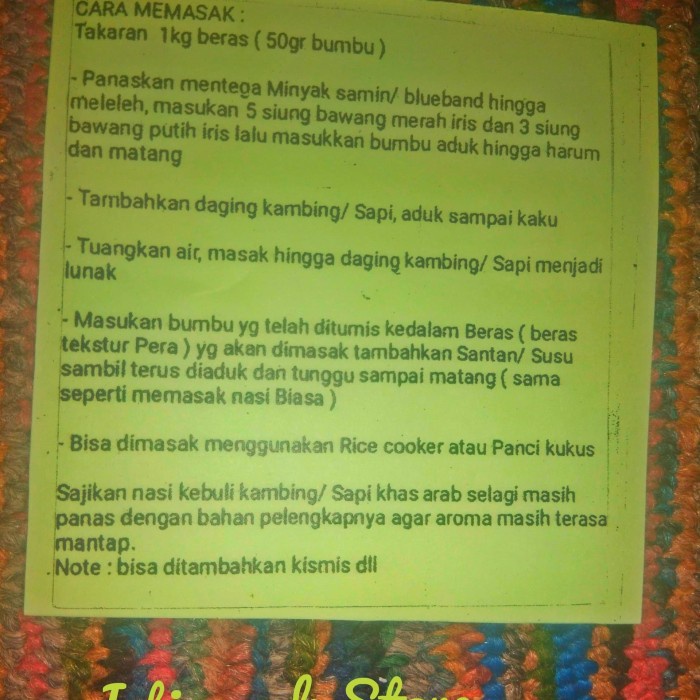 CARA MEMASAK :
Takaran 1kg beras ( 50gr bumbu )
- Panaskan mentega Minyak samin/ blueband hingga
meleleh, masukan 5 siung bawang merah iris dan 3 siung
bawang putih iris lalu masukkan bumbu aduk hingga harum
dan matang
- Tambahkan daging kambing/ Sapi, aduk sampai kaku
- Tuangkan air, masak hingga daging kambing/ Sapi menjadi
lunak
- Masukan bumbu yg telah ditumis kedalam Beras ( beras
tekstur Pera ) yg akan dimasak tambahkan Santan/ Susu
sambil terus diaduk dan tunggu sampai matang ( sama
seperti memasak nasi Biasa )
- Bisa dimasak menggunakan Rice cooker atau Panci kukus
Sajikan nasi kebuli kambing/ Sapi khas arab selagi masih
panas dengan bahan pelengkapnya agar aroma masih terasa
mantap.
Note : bisa ditambahkan kismis dll